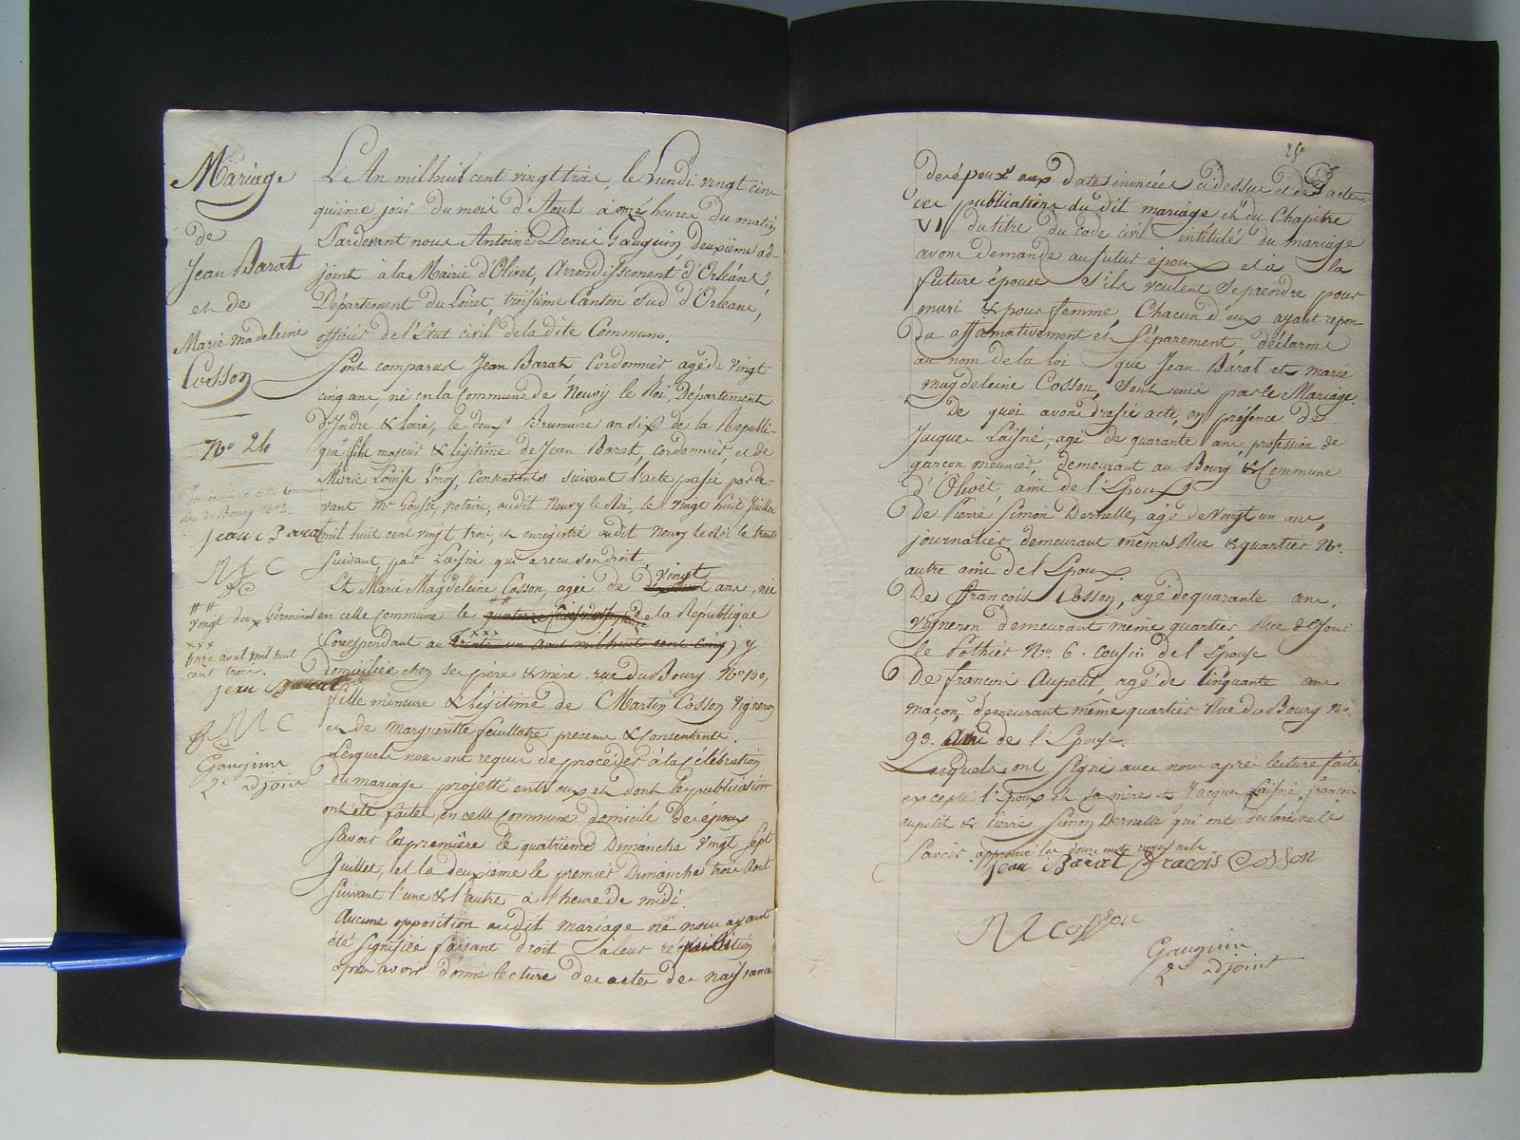 Mariage
de
Jean Barat
et de
Marie madeleine
Cosson
No 24
Jean Barat
M C
## vingt deux Germinal
xxx
onze avril mil huit
cent trois.
jean Barat
M C
Gauguin
2e adjoint
L'An mil huit cent vingt trois, le Lundi vingt cin
quième jour du mois d'Aout à onze heures du matin
Pardevant nous Antoine Denis Gauguin, deuxième ad-
joint à la Mairie d'Olivet, Arrondissement d'Orléans
Département du Loiret, troisième Canton Sud d'Orléans,
officier de l'état civil de la dite Commune.
Sont comparus Jean Barat Cordonnier agé de vingt
cinq ans, né en la Commune de Neuvy le Roi, Département
d'Indre & Loire, le deux Brumaire an six de la Républi-
que fils majeur & légitime de Jean Barat, cordonnier, et de
Marie Louise Leroy, Consentants suivant l'acte passé parde-
vant Me notaire, audit Neuvy le Roi, le vingt huit Juillet
mil huit cent vingt trois, & enregistré audit Neuvy le Roi le trente
suivant par Laisné qui a reçu son droit.
Et Marie Magdeleine Cosson, agée de vingt ans, née
en cette commune le ## de la République
Correspondant au xxx trente un Aout mil huit cent cinq, y
domiciliée chez ses père & mère rue du Bourg No 130,
fille mineure & légitime de Martin Cosson Vigneron
et de Margueritte feuillatre présens & Consentants.
Lesquels nous ont requis de procéder à la célébration
du mariage projetté entre eux et dont les publications
ont été faites, en cette commune domicile des époux
Savoir la première le quatrième Dimanche vingt sept
Juillet, et la deuxième le premier Dimanche trois Aout
suivant l'une & l'autre à l'heure de midi.
Aucune opposition audit mariage ne nous ayant
été signifiée faisant droit à leur réquisition
après avoir donné lecture des actes de naissance
25e
des époux aux dates énoncées ci dessus et de l'acte
des publications du dit mariage et du Chapitre
VI du titre du code civil intitulé du mariage
avons demandé au futur époux et à la
future épouse s'ils veulent se prendre pour
mari & pour femme, Chacun d'eux ayant répon
du affirmativement et séparément, déclarons
au nom de la loi que Jean Barat et marie
magdeleine Cosson, sont unis par le Mariage.
de quoi avons dressé acte, en présence de
Jacques Laisné, agé de quarante ans, profession de
garçon meunier, demeurant au Bourg & Commune
d'Olivet, ami de l'Epoux
De Pierre Simon Dernelle, agé de vingt un ans,
journalier demeurant mêmes Rue & quartier No
autre ami de l'Epoux.
De François Cosson, agé de quarante ans,
vigneron demeurant même quartier Rue
le Pothier No 6. cousin de l'épouse
De françois Aupetit, agé de Cinquante ans
maçon, demeurant même quartier Rue du Bourg No
93. Ami de l'Epouse.
Lesquels ont signé avec nous après lecture faite
excepté l'Epoux et sa mère et Jacques Laisné, françois
aupetit & Pierre Simon Dernelle qui ont déclaré ne le
savoir approuvé les mots rayés nuls
jean Barat fracois Cosson
M Cosson
Gauguin
2e adjoint